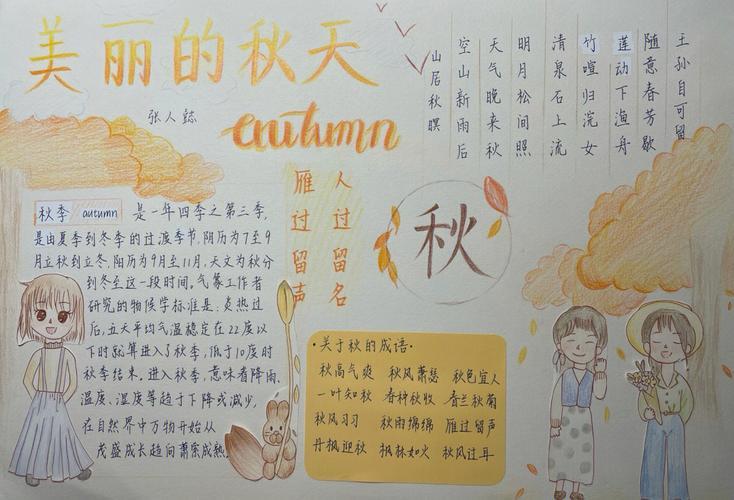 美丽的秋天
张人
autumn
山居秋暝
空山新雨后
天气晚来秋
明月松间照
清泉石上流
竹喧归浣女
莲动下渔舟
随意春芳歇
王孙自可留
雁过留声
人过留名
秋
秋季 autumn 是一年四季之第三季,
是由夏季到冬季的过渡季节,阴历为7至9
月立秋到立冬,阳历为9月至11月,天文为秋分
到冬至这一段时间。气象工作者
研究的物候学标准是:炎热过
后,五天平均气温稳定在22度以
下时就算进入了秋季,低于10度时
秋季结束。进入秋季,意味着降雨、
温度、湿度等趋于下降或减少,
在自然界中万物开始从
茂盛成长趋向萧索成熟。
·关于秋的成语·
秋高气爽 秋风萧瑟 秋色宜人
一叶知秋 春种秋收 春兰秋菊
秋风习习 秋雨绵绵 雁过留声
丹枫迎秋 枫林如火 秋风过耳